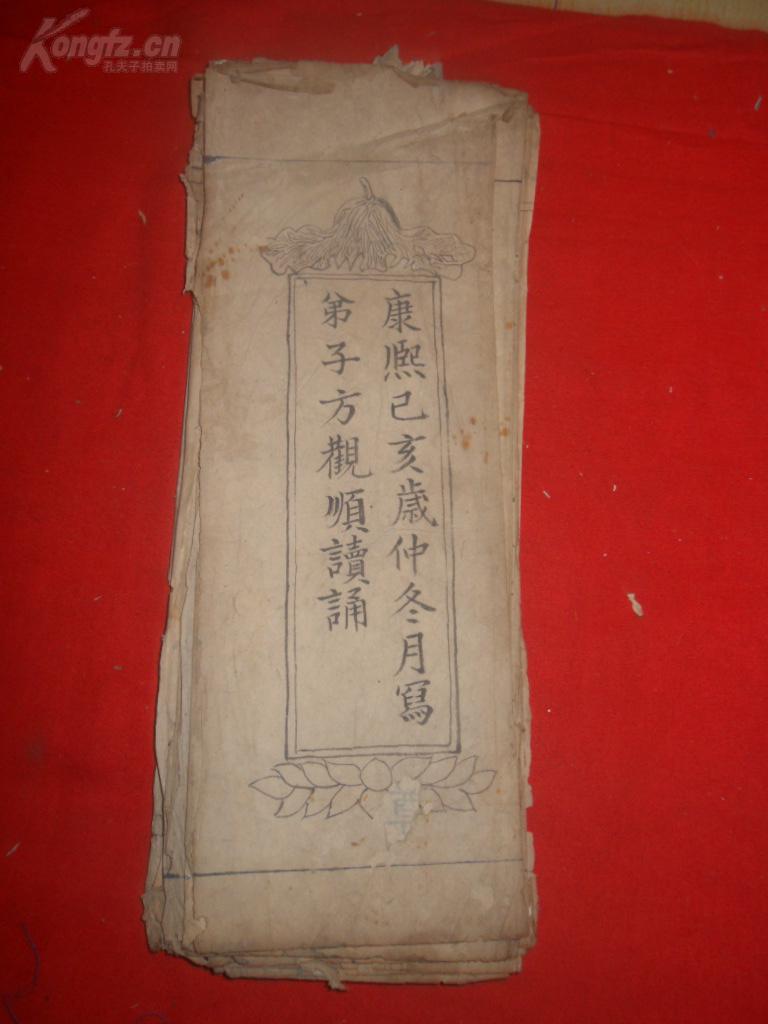 Kongfz.cn
孔夫子拍卖网
康熈己亥歳仲冬月寫
弟子方觀順讀誦